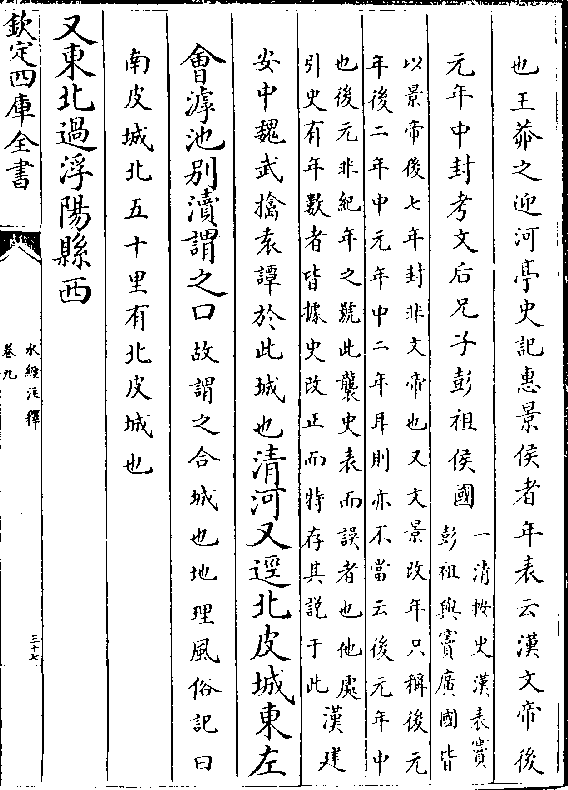 也王莽之迎河亭史記惠景侯者年表云漢文帝後
元年中封孝文后兄子彭祖侯國
一清按史漢表竇
彭祖與竇廣國皆
以景帝後七年封非文帝也又文景改年只稱後元
年後二年中元年中二年耳則亦不當云後元年中
也後元非紀年之號此襲史表而誤者也他處
引史有年數者皆據史改正而特存其説于此
漢建
安中魏武擒袁譚於此城也清河又逕北皮城東左
會滹池别瀆謂之口故謂之合城也地理風俗記曰
南皮城北五十里有北皮城也
又東北過浮陽縣西
欽定四庫全書
水經注釋
卷九
三十七